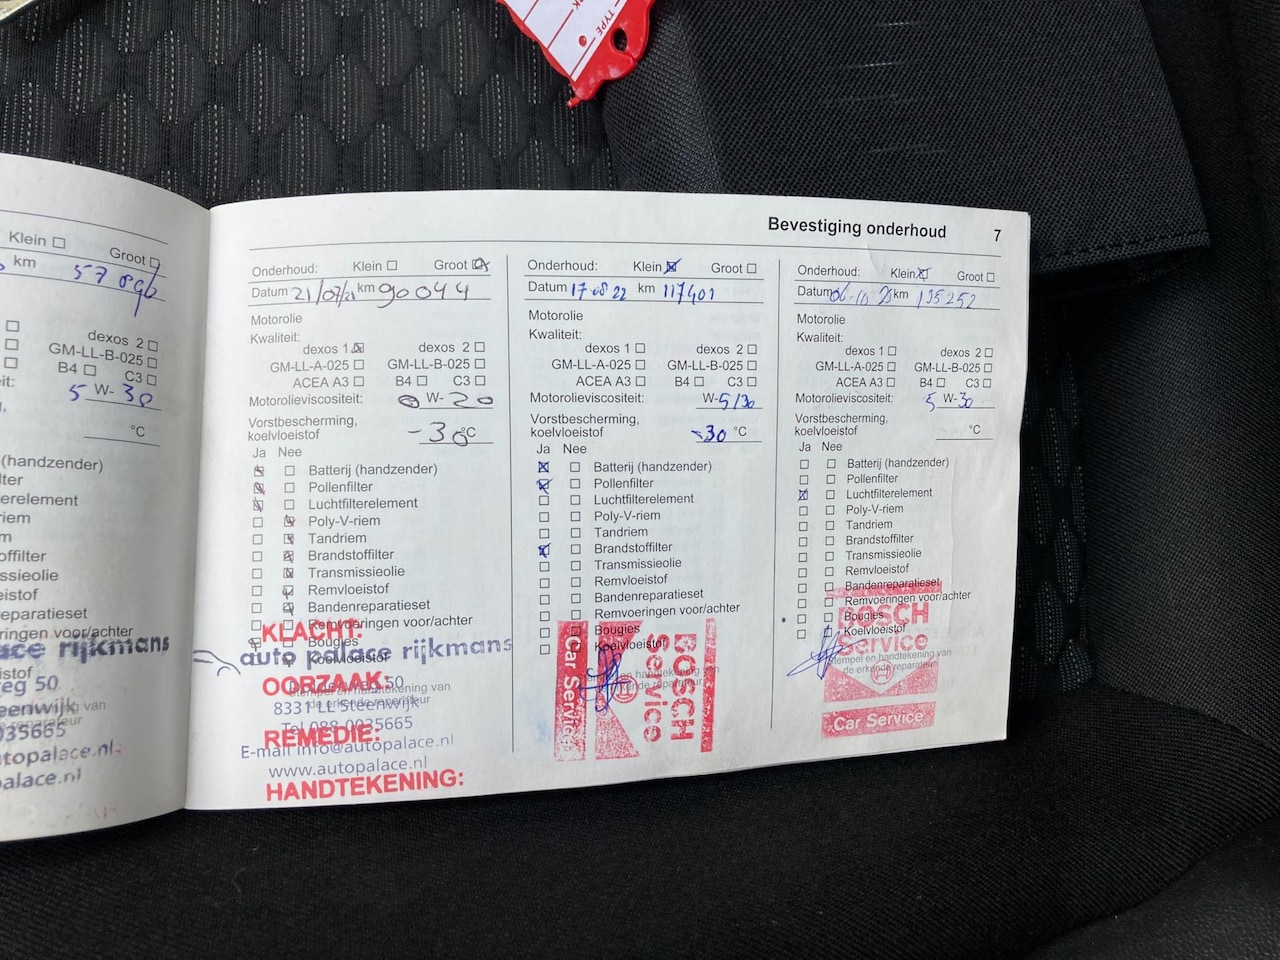 TYPE
Klein
Groot
km 57896
dexos 2
GM-LL-B-025
B4 C3
5 W-30
°C
(handzender)
Bevestiging onderhoud 7
Onderhoud: Klein Groot
Datum 21/07/21 km 90044
Motorolie
Kwaliteit:
dexos 1 dexos 2
GM-LL-A-025 GM-LL-B-025
ACEA A3 B4 C3
Motorolieviscositeit: 0 W-20
Vorstbescherming,
koelvloeistof -30 °C
Ja Nee
Batterij (handzender)
Pollenfilter
Luchtfilterelement
Poly-V-riem
Tandriem
Brandstoffilter
Transmissieolie
Remvloeistof
Bandenreparatieset
Remvoeringen voor/achter
Bougies
Koelvloeistof
KLACHT:
auto palace rijkmans
OORZAAK:
Stempel en handtekening van
de erkende reparateur
8331 LL Steenwijk
Tel 088-0035665
REMEDIE:
E-mail info@autopalace.nl
www.autopalace.nl
HANDTEKENING:
Onderhoud: Klein Groot
Datum 17-08-22 km 117401
Motorolie
Kwaliteit:
dexos 1 dexos 2
GM-LL-A-025 GM-LL-B-025
ACEA A3 B4 C3
Motorolieviscositeit: W-5/30
Vorstbescherming,
koelvloeistof -30 °C
Ja Nee
Batterij (handzender)
Pollenfilter
Luchtfilterelement
Poly-V-riem
Tandriem
Brandstoffilter
Transmissieolie
Remvloeistof
Bandenreparatieset
Remvoeringen voor/achter
Bougies
Koelvloeistof
BOSCH
Service
Car Service
Onderhoud: Klein Groot
Datum km 135252
Motorolie
Kwaliteit:
dexos 1 dexos 2
GM-LL-A-025 GM-LL-B-025
ACEA A3 B4 C3
Motorolieviscositeit: 5 W-30
Vorstbescherming,
koelvloeistof °C
Ja Nee
Batterij (handzender)
Pollenfilter
Luchtfilterelement
Poly-V-riem
Tandriem
Brandstoffilter
Transmissieolie
Remvloeistof
Bandenreparatieset
Remvoeringen voor/achter
Bougies
Koelvloeistof
BOSCH
Service
Stempel en handtekening van
de erkende reparateur
Car Service